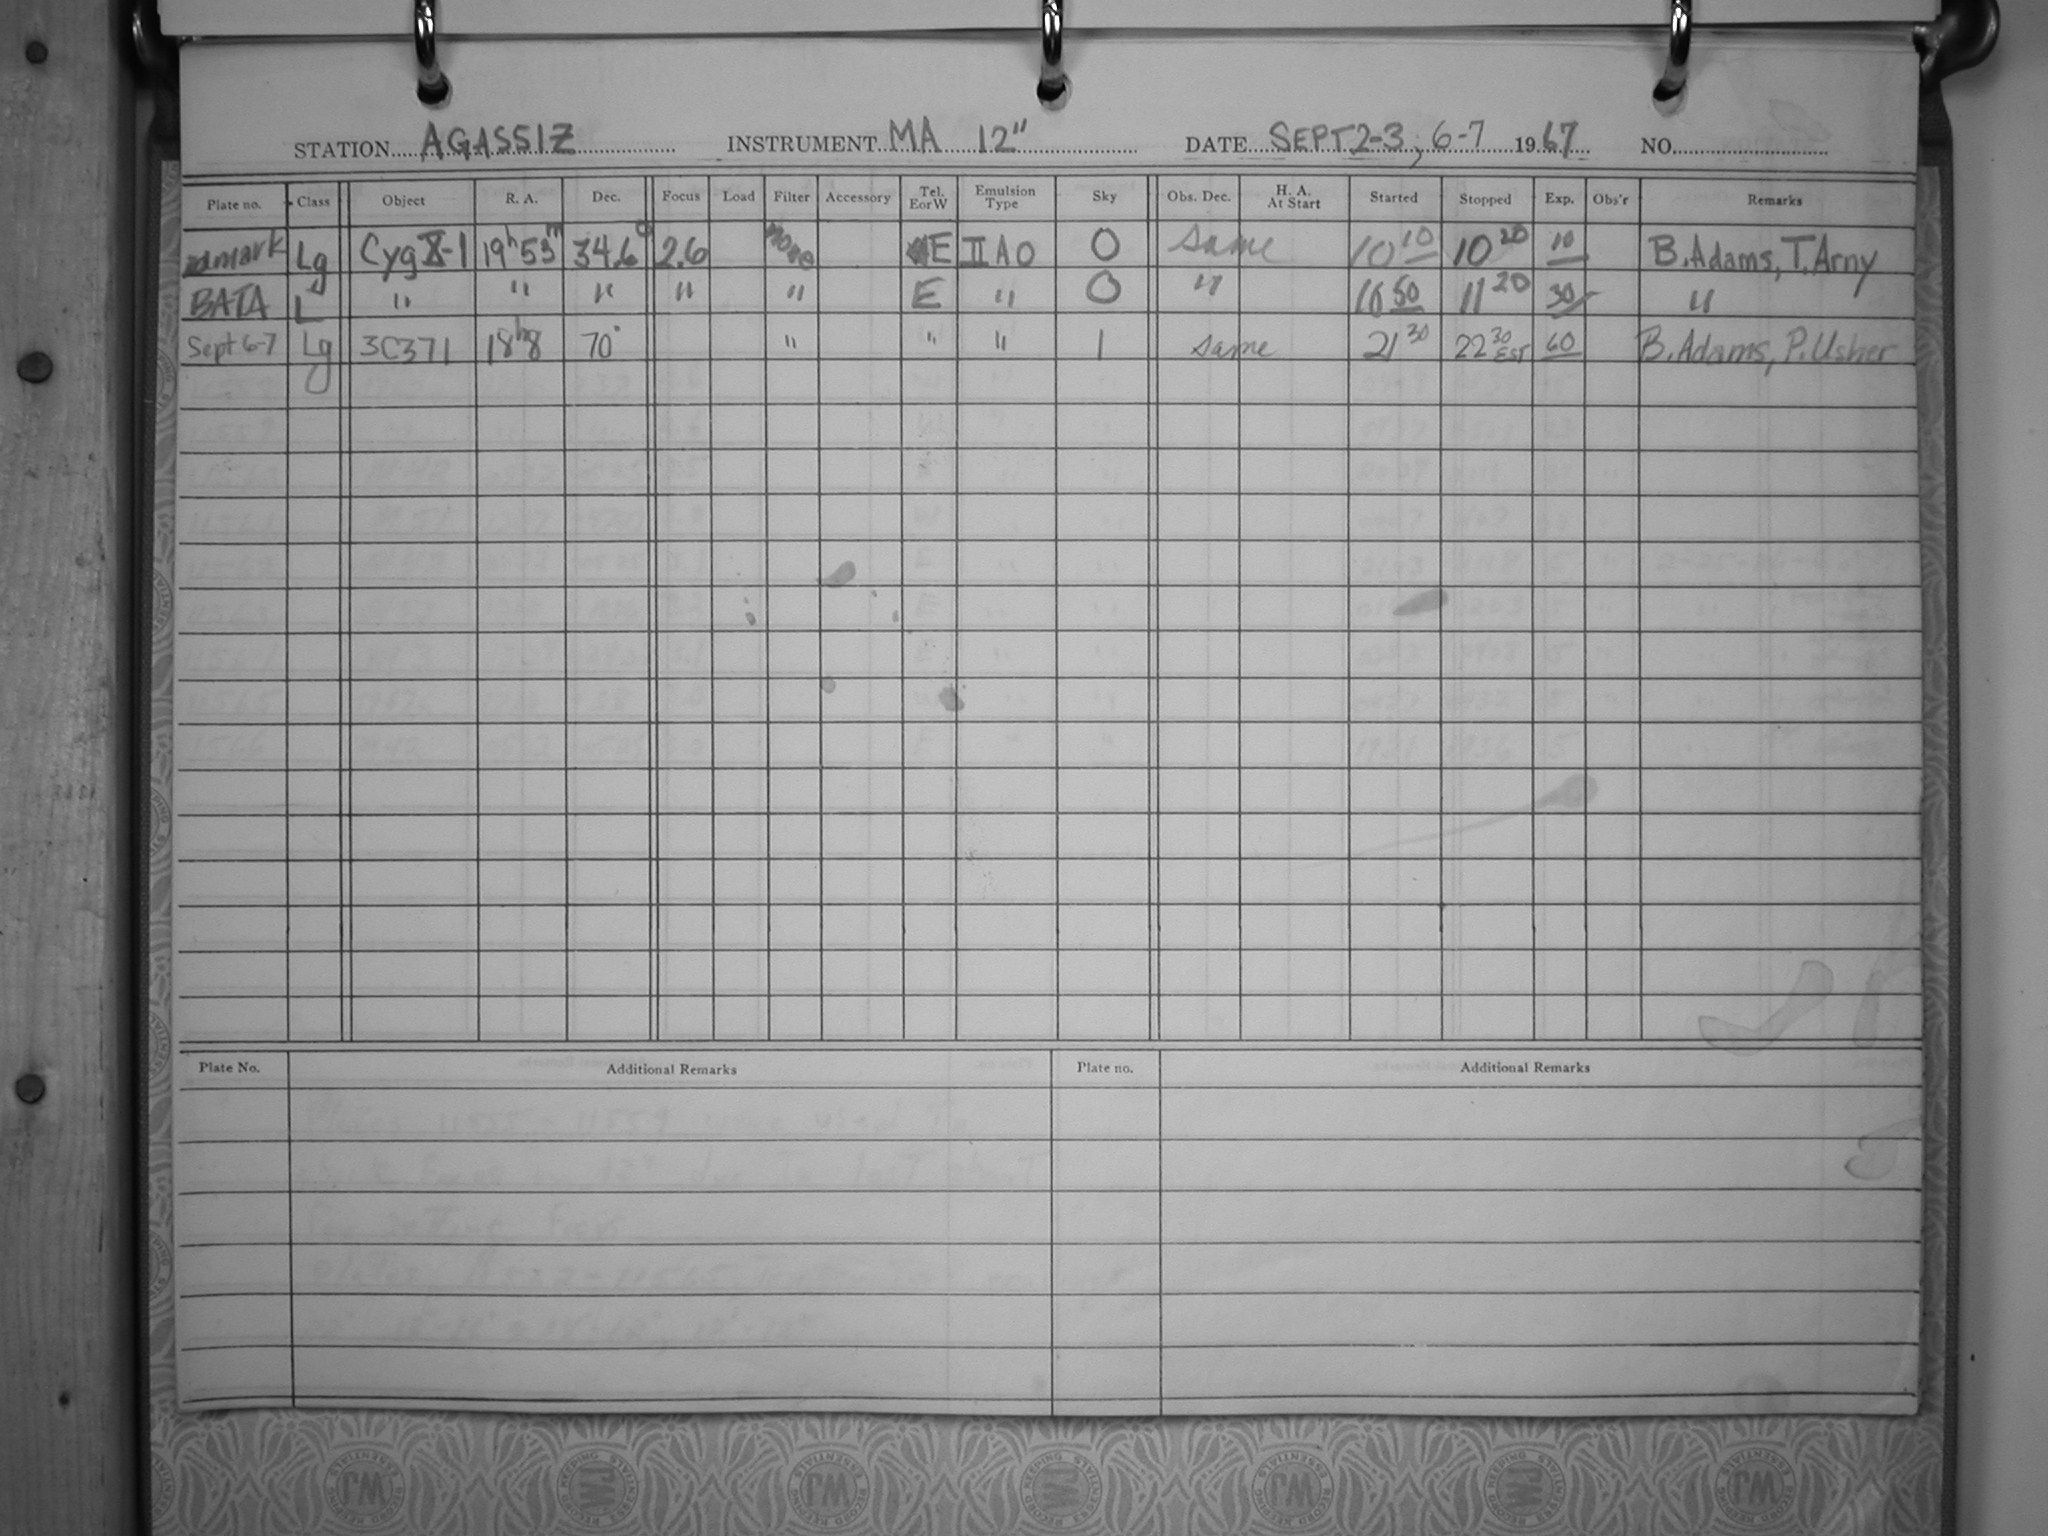 STATION AGASSIZ INSTRUMENT MA 12" DATE SEPT 2-3, 6-7 1967 NO.
Plate no. Class Object R. A. Dec. Focus Load Filter Accessory Tel. E or W Emulsion Type Sky Obs. Dec. H. A. At Start Started Stopped Exp. Obs'r Remarks
Lg Cyg X-1 19h 53m 34.6° 2.6 none E II A O 0 same 10 10 10 20 10 B. Adams, T. Arny
BATA L " " " " " E " 0 " 10 50 11 20 30 "
Sept 6-7 Lg 3C371 18h8 70° " " " 1 same 21 30 22 30 EST 60 B. Adams, P. Usher
Plate No. Additional Remarks Plate no. Additional Remarks